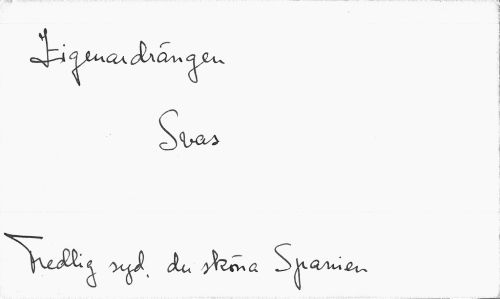 Zigenardrängen
Svas
Fredlig syd, du sköna Spanien